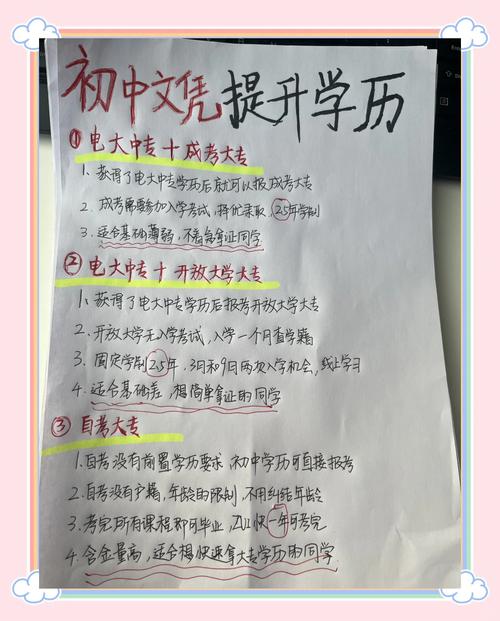 初中文凭提升学历
① 电大中专+成考大专
1、获得了电大中专学历后就可以报成考大专
2、成考需要参加入学考试，择优录取，2.5年学制
3、适合基础薄弱，不着急拿证同学
② 电大中专+开放大学大专
1、获得了电大中专学历后报考开放大学大专
2、开放大学无入学考试，入学一个月查学籍
3、固定学制2.5年，3月和9月两次入学机会，线上学习
4、适合基础差，想简单拿证的同学
③ 自考大专
1、自考没有前置学历要求 初中学历可直接报考
2、自考没有户籍，年龄的限制，不用纠结年龄
3、考完所有课程即可毕业，最快一年可考完
4、含金量高，适合想快速拿大专学历的同学